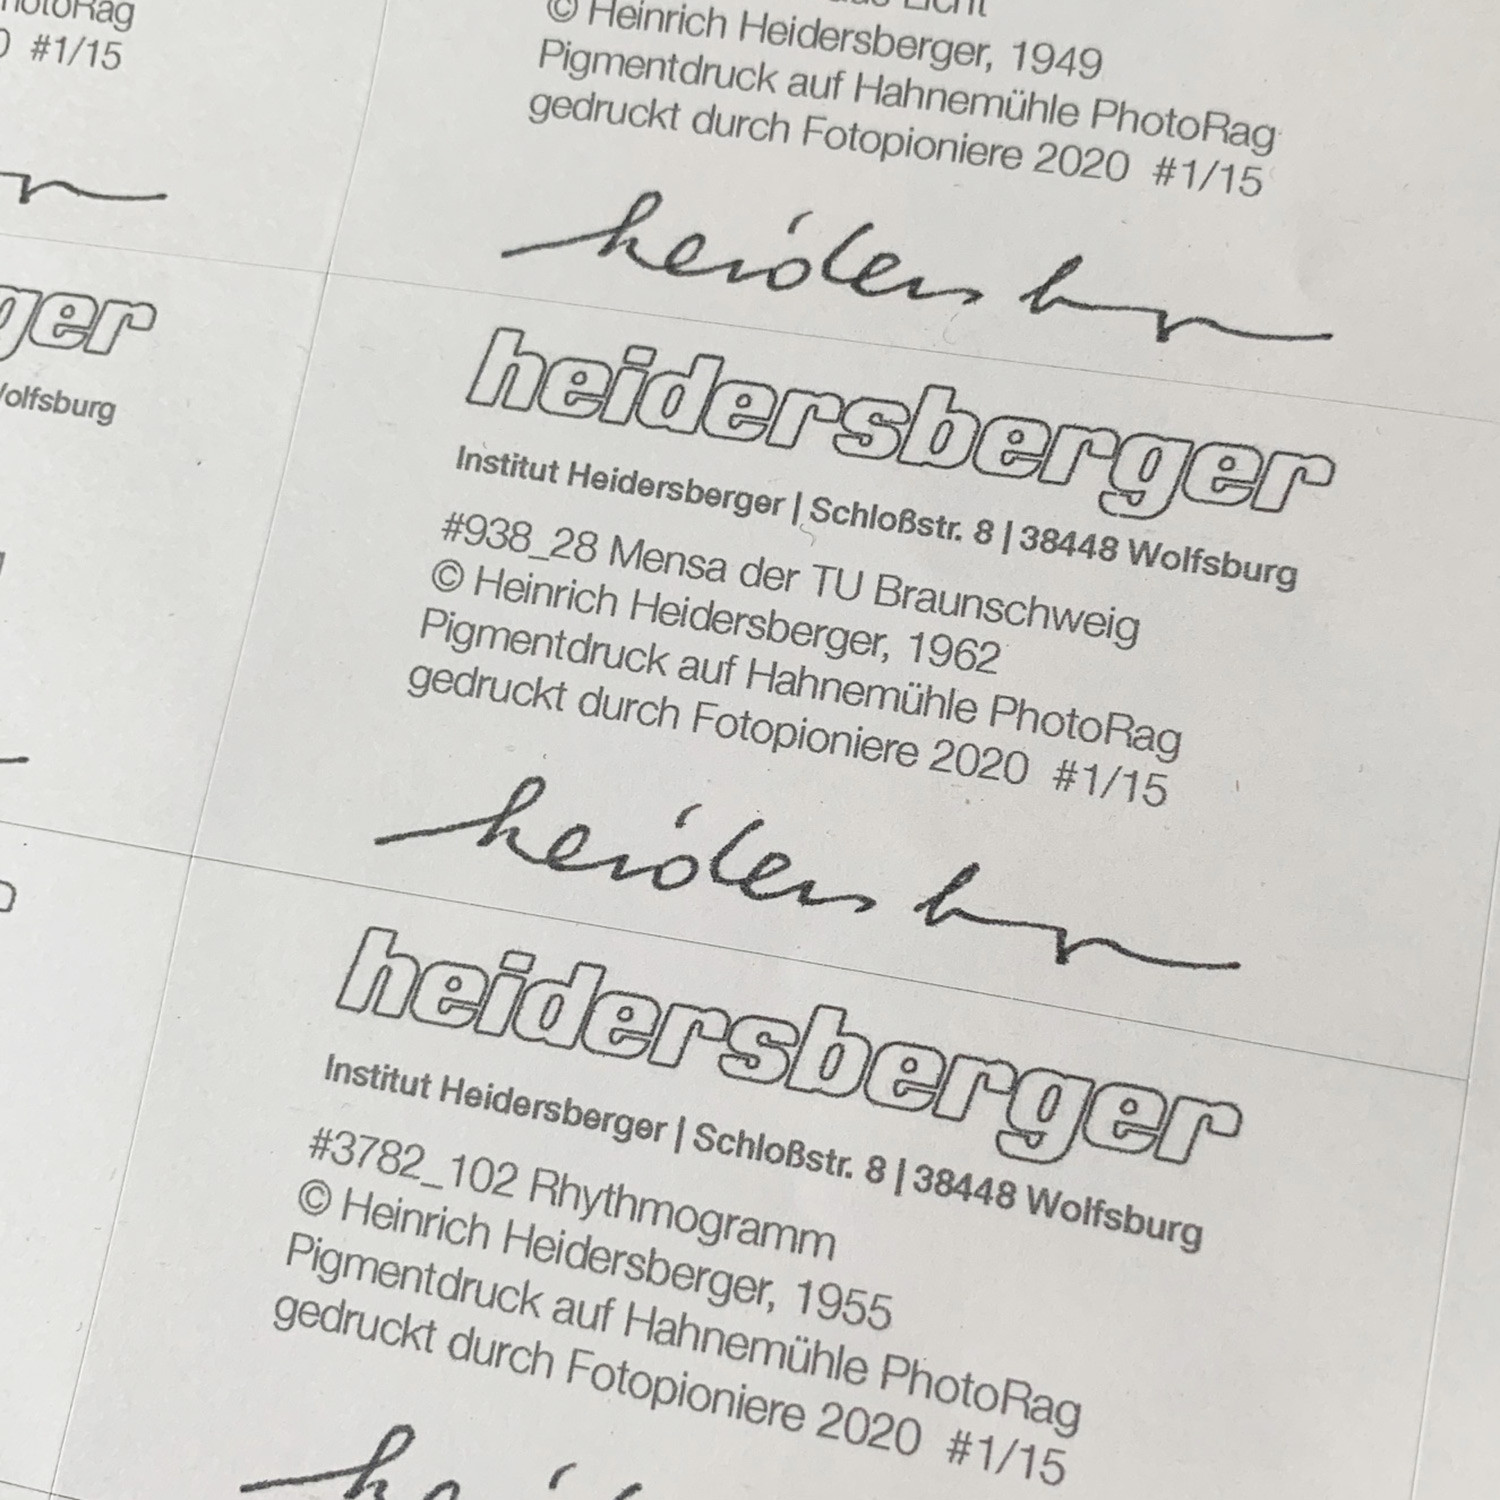 PhotoRag
#1/15
ger
Wolfsburg
Licht
© Heinrich Heidersberger, 1949
Pigmentdruck auf Hahnemühle PhotoRag
gedruckt durch Fotopioniere 2020 #1/15
heidersberger
heidersberger
Institut Heidersberger | Schloßstr. 8 | 38448 Wolfsburg
#938_28 Mensa der TU Braunschweig
© Heinrich Heidersberger, 1962
Pigmentdruck auf Hahnemühle PhotoRag
gedruckt durch Fotopioniere 2020 #1/15
heidersberger
heidersberger
Institut Heidersberger | Schloßstr. 8 | 38448 Wolfsburg
#3782_102 Rhythmogramm
© Heinrich Heidersberger, 1955
Pigmentdruck auf Hahnemühle PhotoRag
gedruckt durch Fotopioniere 2020 #1/15